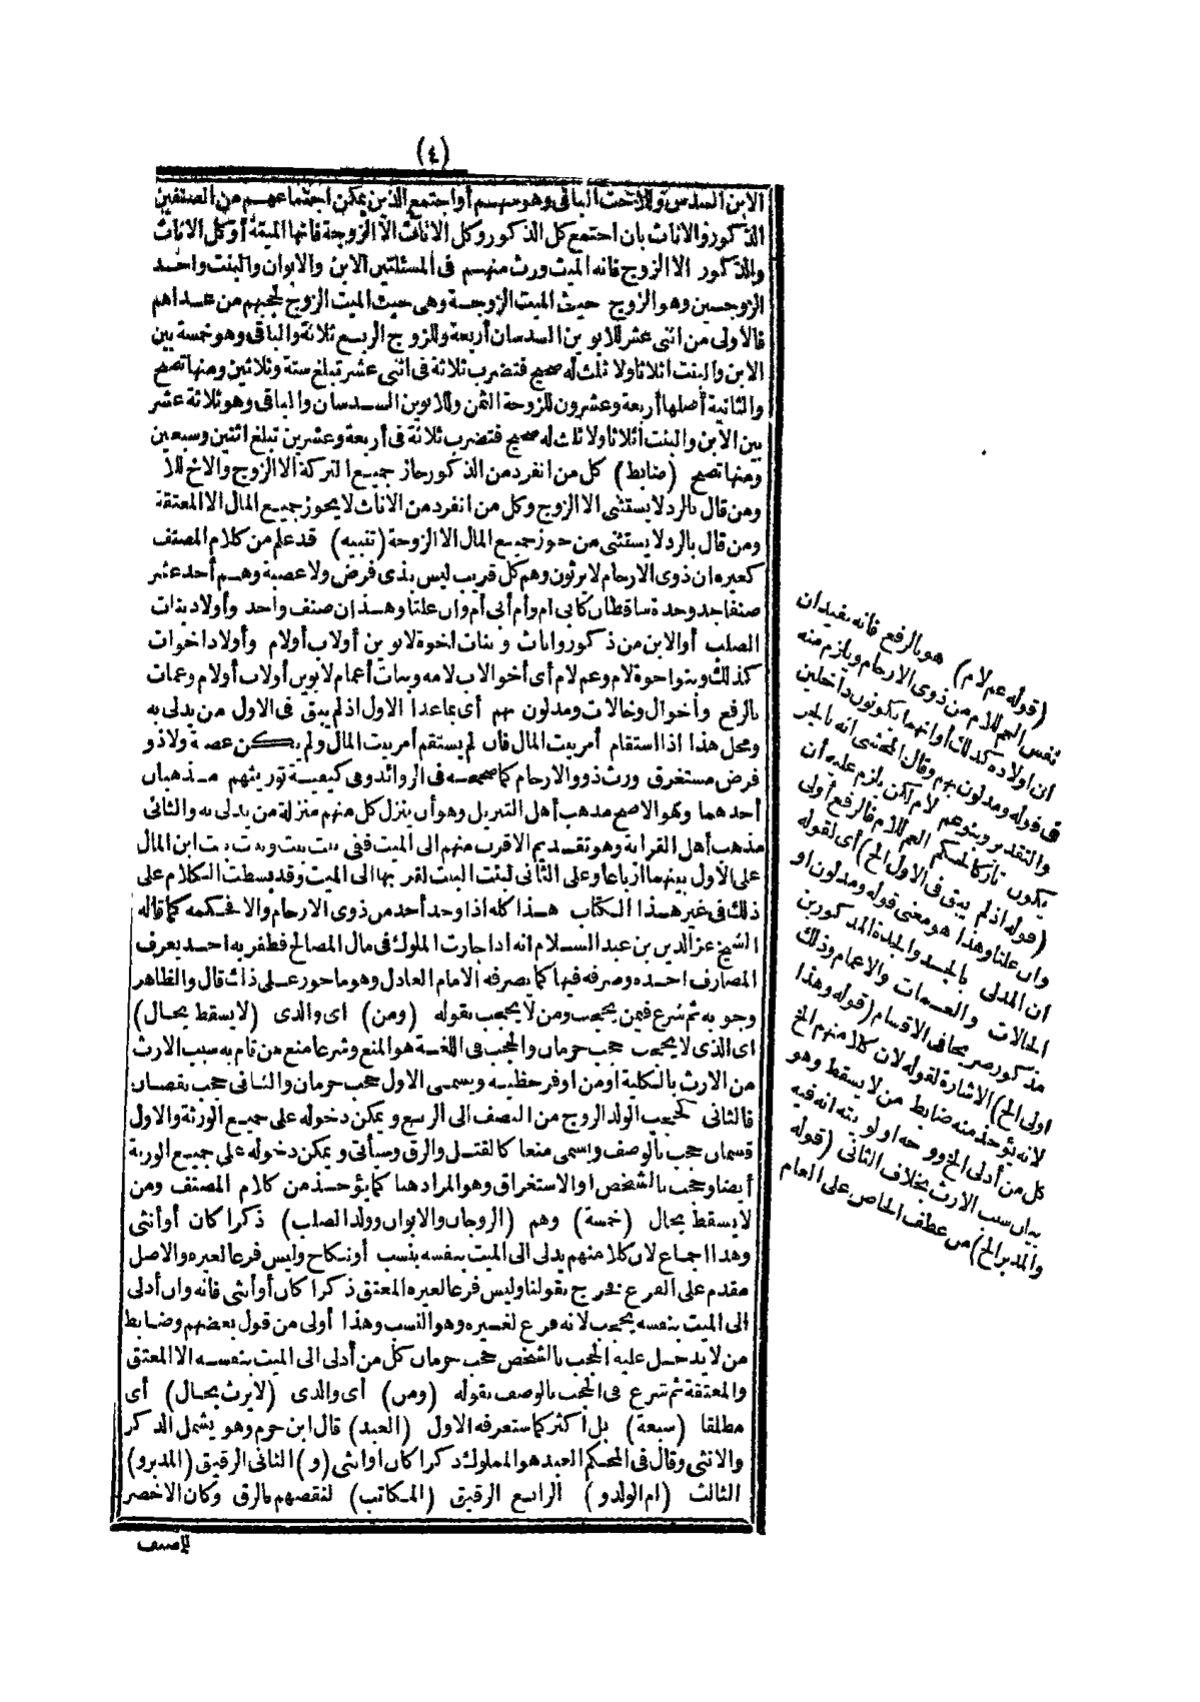 (٤)
الابن السدس وللاخت الباقى وهو سهم أو اجتمع الذين يمكن اجتماعهم من الصنفين
الذكور والاناث بان اجتمع كل الذكور وكل الاناث الا الزوجة فانها الميتة أو كل الاناث
والذكور الا الزوج فانه الميت ورث منهم فى المسئلتين الابن والابوان والبنت واحد
الزوجين وهو الزوج حيث الميت الزوجة وهى حيث الميت الزوج لحجبهم من عداهم
فالاولى من اثنى عشر للابوين السدسان أربعة وللزوج الربع ثلاثة والباقى وهو خمسة بين
الابن والبنت اثلاثا ولا ثلث له صحيح فتضرب ثلاثة فى اثنى عشر تبلغ ستة وثلاثين ومنها تصح
والثانية أصلها أربعة وعشرون للزوجة الثمن وللابوين السدسان والباقى وهو ثلاثة عشر
بين الابن والبنت أثلاثا ولا ثلث له صحيح فتضرب ثلاثة فى أربعة وعشرين تبلغ اثنين وسبعين
ومنها تصح (ضابط) كل من انفرد من الذكور حاز جميع التركة الا الزوج والاخ للام
ومن قال بالرد لا يستثنى الا الزوج وكل من انفرد من الاناث لا يحوز جميع المال الا المعتقة
ومن قال بالرد لا يستثنى من حوز جميع المال الا الزوجة (تنبيه) قد علم من كلام المصنف
كغيره ان ذوى الارحام لا يرثون وهم كل قريب ليس بذى فرض ولا عصبة وهم أحد عشر
صنفا جد وجدة ساقطان كابى ام وأم أبى أم وان علتا وهذان صنف واحد وأولاد بنات
الصلب أو الابن من ذكور واناث وبنات اخوة لابوين أو لاب أو لام وأولاد اخوات
كذلك وبنو اخوة لام وعم لام أى أخو الاب لامه وبنات أعمام لابوين أو لاب أو لام وعمات
بالرفع وأخوال وخالات ومدلون بهم أى بما عدا الاول اذ لم يبق فى الاول من يدلى به
ومحل هذا اذا استقام أمر بيت المال فان لم يستقم أمر بيت المال ولم يكن عصبة ولا ذو
فرض مستغرق ورث ذوو الارحام كما صححه فى الزوائد وفى كيفية توريثهم مذهبان
أحدهما وهو الاصح مذهب أهل التنزيل وهو أن ينزل كل منهم منزلة من يدلى به والثانى
مذهب أهل القرابة وهو تقديم الاقرب منهم الى الميت ففى بنت بنت وبنت بنت ابن المال
على الاول بينهما أرباعا وعلى الثانى لبنت البنت لقربها الى الميت وقد بسطت الكلام على
ذلك فى غير هذا الكتاب هذا كله اذا وجد أحد من ذوى الارحام والا فحكمه كما قاله
الشيخ عز الدين بن عبد السلام انه اذا جارت الملوك فى مال المصالح فظفر به احد يعرف
المصارف اخذه وصرفه فيها كما يصرفه الامام العادل وهو ماجور على ذلك قال والظاهر
وجوبه ثم شرع فيمن يحجب ومن لا يحجب بقوله (ومن) اى والذى (لا يسقط بحال)
اى الذى لا يحجب حجب حرمان والحجب فى اللغة هو المنع وشرعا منع من قام به سبب الارث
من الارث بالكلية او من اوفر حظيه ويسمى الاول حجب حرمان والثانى حجب نقصان
فالثانى كحجب الولد الزوج من النصف الى الربع ويمكن دخوله على جميع الورثة والاول
قسمان حجب بالوصف ويسمى منعا كالقتل والرق وسيأتى ويمكن دخوله على جميع الورثة
أيضا وحجب بالشخص او الاستغراق وهو المراد هنا كما يؤخذ من كلام المصنف ومن
لا يسقط بحال (خمسة) وهم (الزوجان والابوان وولد الصلب) ذكرا كان أو أنثى
وهذا اجماع لان كلا منهم يدلى الى الميت بنفسه بنسب أو نكاح وليس فرعا لغيره والاصل
مقدم على الفرع فخرج بقولنا وليس فرعا لغيره المعتق ذكرا كان أو أنثى فانه وان أدلى
الى الميت بنفسه يحجب لانه فرع لغيره وهو النسب وهذا أولى من قول بعضهم وضابط
من لا يدخل عليه الحجب بالشخص حجب حرمان كل من أدلى الى الميت بنفسه الا المعتق
والمعتقة ثم شرع فى الحجب بالوصف بقوله (ومن) أى والذى (لا يرث بحال) أى
مطلقا (سبعة) بل أكثر كما ستعرفه الاول (العبد) قال ابن حزم وهو يشمل الذكر
والانثى وقال فى المحكم العبد هو المملوك ذكرا كان او انثى (و) الثانى الرقيق (المدبرو)
الثالث (ام الولدو) الرابع الرقيق (المكاتب) لنقصهم بالرق وكان الاخصر
للمصنف
(قوله عم لام) هو بالرفع فانه يفيد ان
نفس العم للام من ذوى الارحام ويلزم منه
ان اولاده كذلك أو انهما يكونون داخلين
فى قوله ومدلون بهم وقال المحشى انه بالجر
والتقدير وبنو عم لام لكن يلزم عليه أن
يكون تاركا لحكم العم للام فالرفع أولى
(قوله اذ لم يبق فى الاول الخ) أى لقوله
وان علتا وهذا هو معنى قوله ومدلون او
ان المدلى بالجد والجدة المذكورين
الخالات والعمات والاعمام وذلك
مذكور صريحا فى الاقسام (قوله وهذا
اولى الخ) الاشارة لقوله لان كلا منهم الخ
لانه يؤخذ منه ضابط من لا يسقط وهو
كل من أدلى الخ ووجه اولويته انه فيه
بيان سبب الارث بخلاف الثانى (قوله
والمدبر الخ) من عطف الخاص على العام